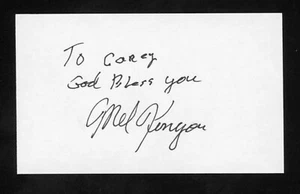 To Corey
God Bless you
Mel Kenyon